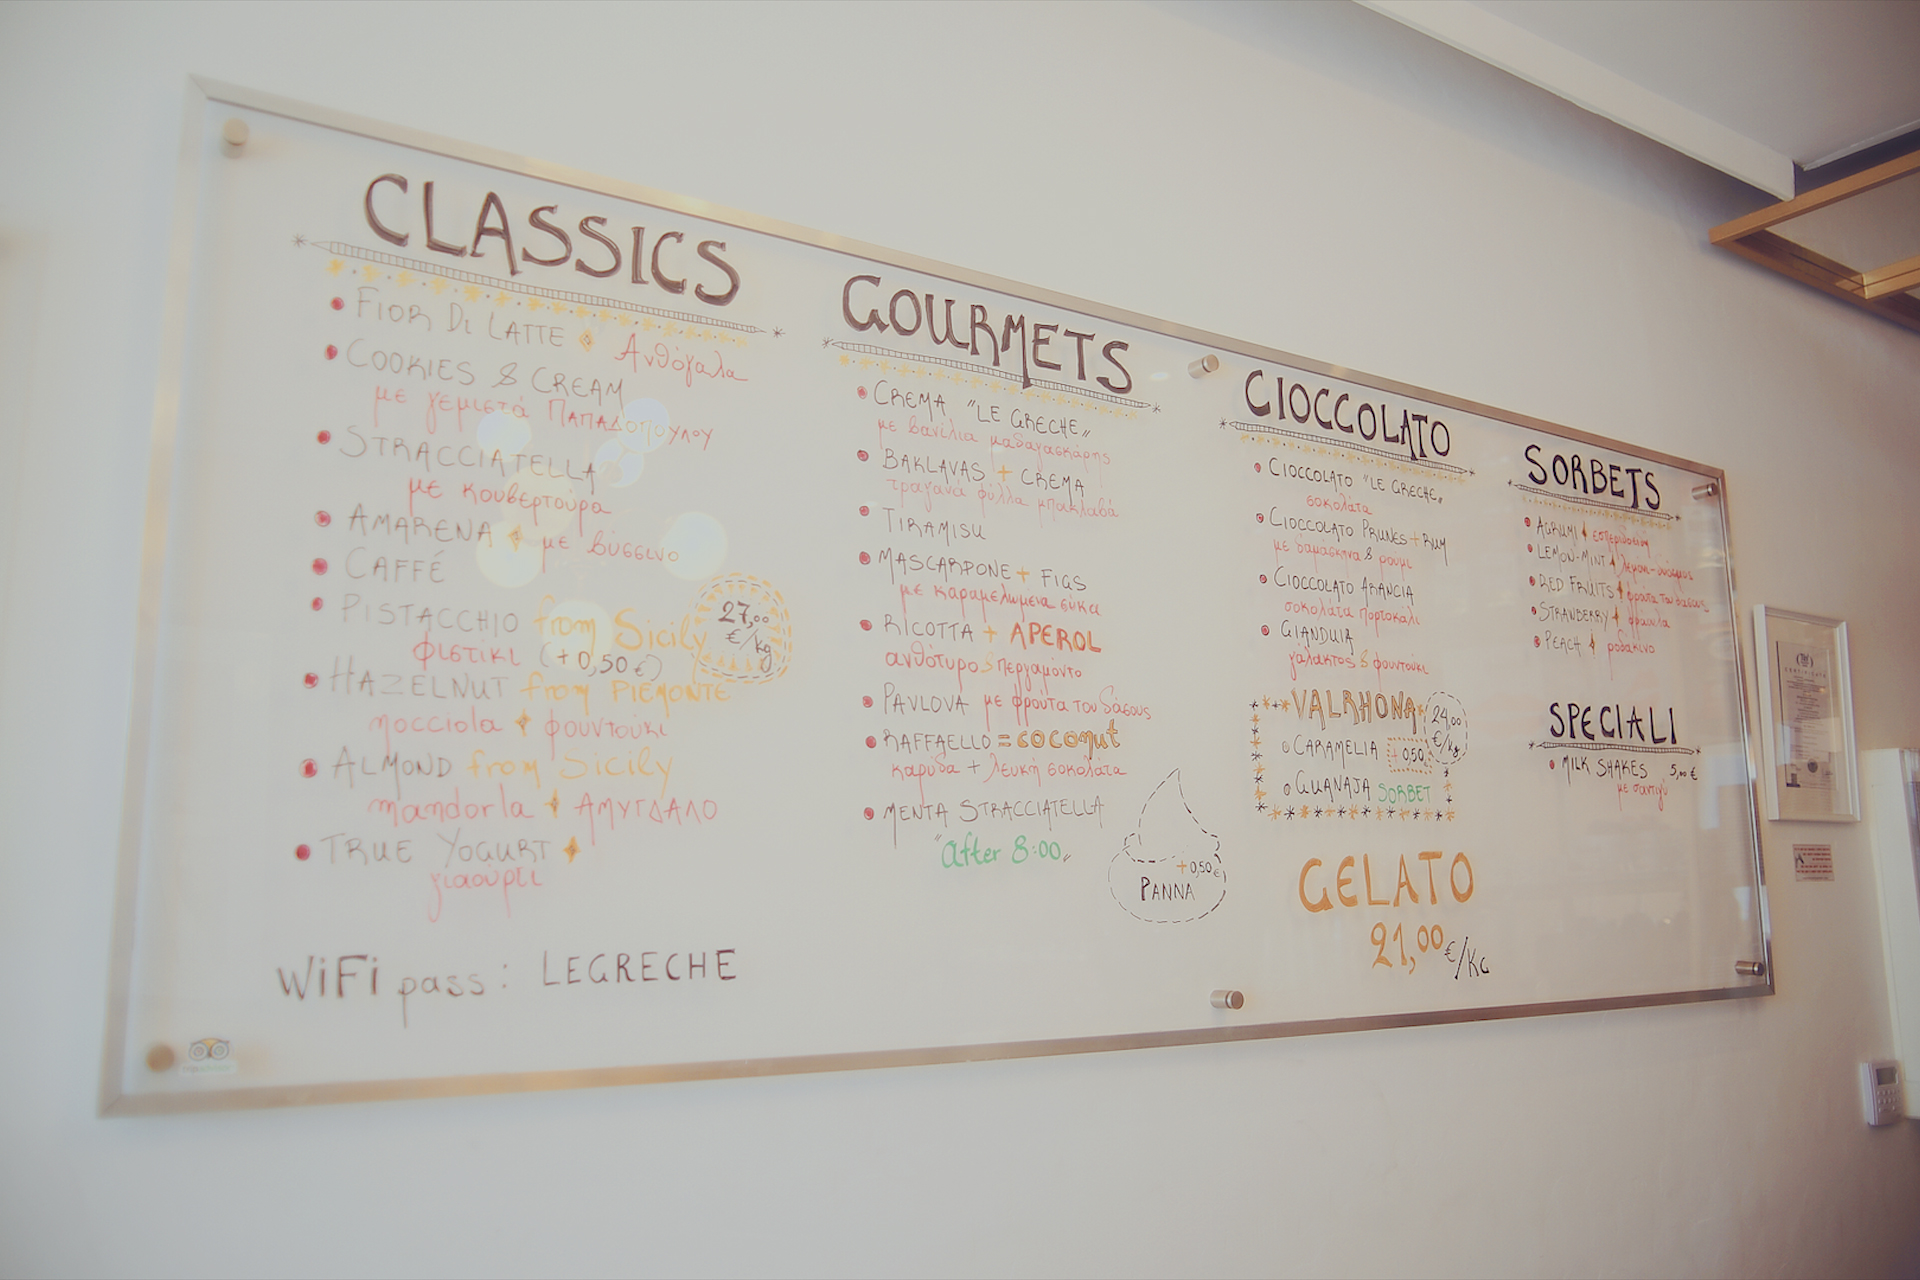 CLASSICS
FIOR Di LATTE Ανθόγαλα
COOKIES & CREAM
με γεμιστά ΠΑΠΑΔΟΠΟΥΛΟΥ
STRACCIATELLA
με κουβερτούρα
AMARENA με βύσσινο
CAFFÉ
PISTACCHIO from Sicily
φιστίκι (+0,50€)
27,00
€/kg
HAZELNUT from PIEMONTE
nocciola φουντούκι
ALMOND from Sicily
mandorla ΑΜΥΓΔΑΛΟ
TRUE YOGURT
γιαούρτι
WiFi pass: LEGRECHE
GOURMETS
CREMA "LE GRECHE"
με βανίλια μαδαγασκάρης
BAKLAVAS + CREMA
τραγανά φύλλα μπακλαβά
TIRAMISU
MASCARPONE + FIGS
με καραμελωμενα σύκα
RICOTTA + APEROL
ανθότυρο & περγαμόντο
PAVLOVA με φρούτα του δάσους
RAFFAELLO = coconut
καρύδα + λευκή σοκολάτα
MENTA STRACCIATELLA
"After 8:00"
+0,50€
PANNA
CIOCCOLATO
CIOCCOLATO "LE GRECHE"
σοκολάτα
CIOCCOLATO PRUNES + RUM
με δαμάσκηνα & ρουμι
CIOCCOLATO ARANCIA
σοκολάτα πορτοκάλι
GIANDUIA
γάλακτος & φουντούκι
VALRHONA
24,00
€/kg
CARAMELIA +0,50
GUANAJA SORBET
GELATO
21,00 €/KG
SORBETS
AGRUMI εσπεριδοειδή
LEMON-MINT λεμόνι-δυόσμος
RED FRUITS φρούτα του δάσους
STRAWBERRY φράουλα
PEACH ροδάκινο
SPECIALI
MILK SHAKES 5,00€
με σαντιγύ